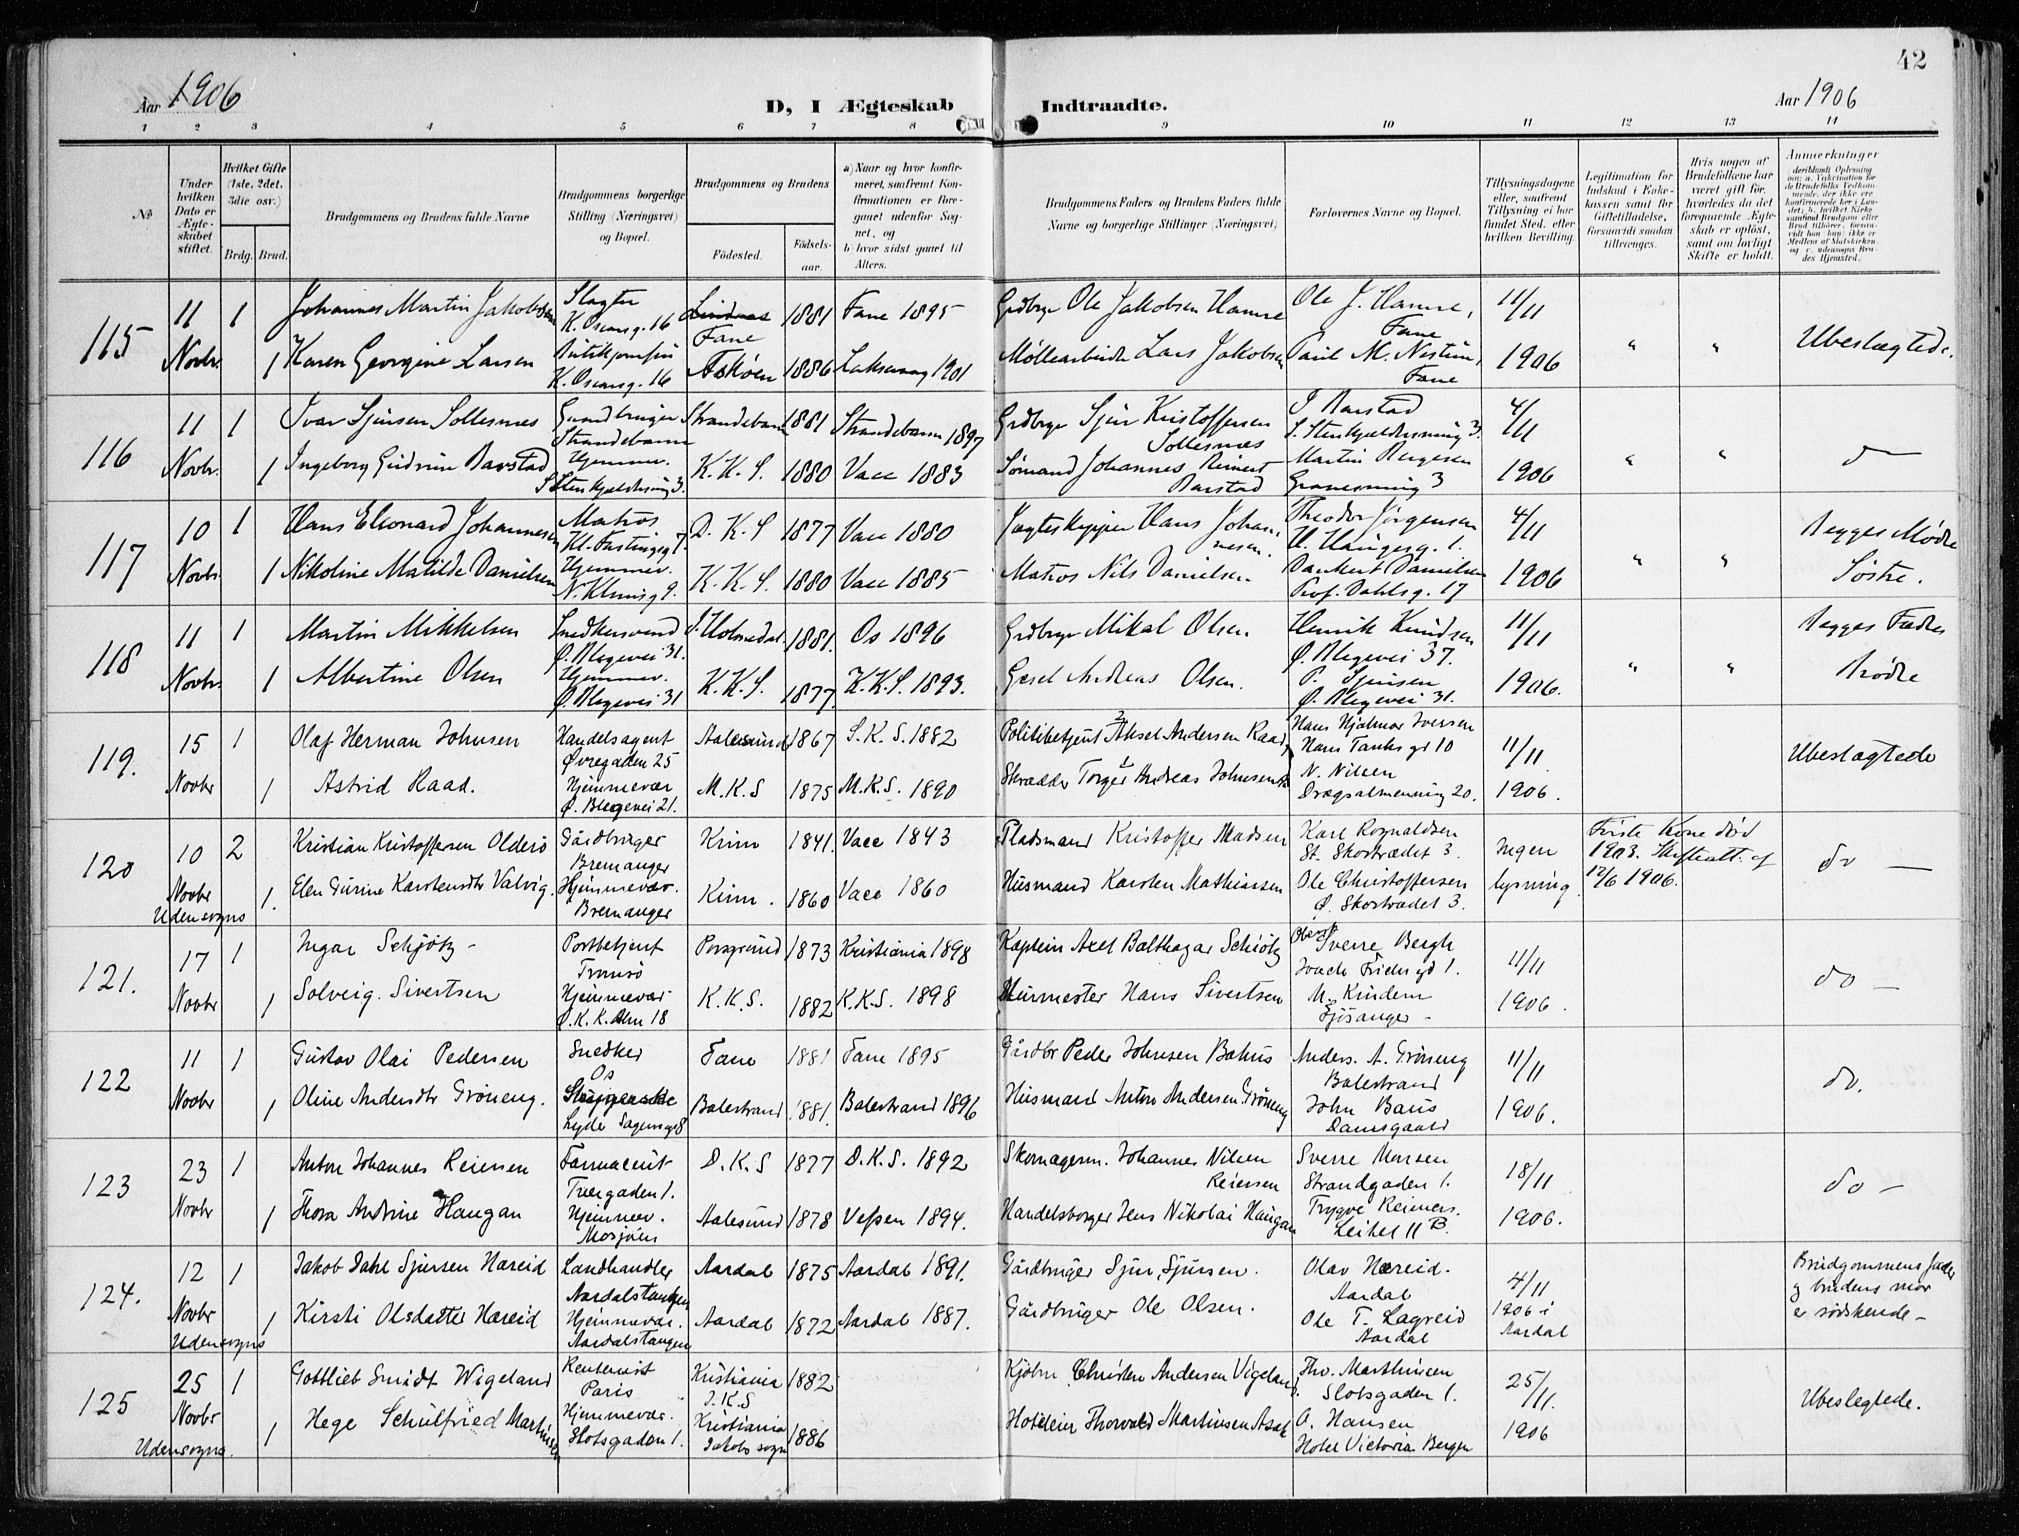 42
Aar 1906
D, I Ægteskab Indtraadte.
Aar 1906
1 2 3 4 5 6 7 8 9 10 11 12 13 14
No
Under hvilken Dato er Ægteskabet stiftet.
Hvilket Gifte (1ste, 2det, 3die osv.)
Brdg. Brud.
Brudgommens og Brudens fulde Navne
Brudgommens borgerlige Stilling (Næringsvei) og Bopæl.
Brudgommens og Brudens
Fødested.
Fødselsaar.
a) Naar og hvor konfirmeret, saafremt Konfirmationen er foregaaet udenfor Sognet, og
b) hvor sidst gaaet til Alters.
Brudgommens Faders og Brudens Faders fulde Navne og borgerlige Stillinger (Næringsvei)
Forlovernes Navne og Bopæl.
Tillysningsdagene eller, saafremt Tillysning ei har fundet Sted, efter hvilken Bevilling.
Legitimation for Indskud i Enkekassen samt for Giftetilladelse, forsaavidt saadan tiltrænges.
Hvis nogen af Brudefolkene har været gift før, hvorledes da det foregaaende Ægteskab er opløst, samt om lovligt Skifte er holdt.
Anmærkninger
115
11 Novbr. 1 Johannes Martin Jakobsen Slagter K. Oscarsg. 16 Fane 1881 Fane 1895 Grdbrgr Ole Jakobsen Hamre Ole J. Hamre, Fane 11/11
1 Karen Georgine Larsen K. Oscarsg. 16 Askøen 1886 Laksevaag 1901 Møllearbeider Lars Jakobsen Fane 1906 " " Ubeslægtede.
116
11 Novbr. 1 Ivar Sjursen Sollesnæs Gaardbruger Strandebarm Strandebarm 1881 Strandebarm 1897 Grdbrgr Sjur Kristoffersen Sollesnæs J Barstad 4/11
1 Ingeborg Gudrun Barstad Hjemmev. K. K. S. 1880 Vacc 1883 Sømand Johannes Reinert Barstad Martin Børgesen 3 1906 " " do
117
10 Novbr. 1 Hans Elionard Johannesen Matros D. K. S 1877 Vacc 1880 Jægteskipper Hans Johannesen. Theodor Jørgensen 4/11 Begges Mødre
1 Nikoline Matilde Danielsen Hjemmev. K. K. S. 1880 Vacc 1885 Matros Nils Danielsen Dankert Danielsen Prof. Dahlsg. 17 1906 " " Søstre.
118
11 Novbr. 1 Martin Mikkelsen Snedkersvend Ø. Blegevei 31. S. Holmedal. 1881. Os 1896 Grdbrgr Mikal Olsen Henrik Knudsen Ø. Blegevei 37. 11/11 Begges Fædre
1 Albertine Olsen Hjemmev. Ø. Blegevei 31 K. K. S. 1877. K. K. S. 1893. Gesel Andreas Olsen. P. Sjursen Ø. Blegevei 31. 1906. " " Brødre
119.
15 Novbr 1 Olaf Herman Johnsen Handelsagent Øvregaden 25 Aalesund 1867 S. K. S. 1882 Politibetjent Aksel Andersen Raad Hans Hjalmar Iversen Hans Tanks gd 10 11/11 Ubeslægtede
1 Astrid Raad. Hjemmevær Ø. Blegevei 21. M.K.S 1875 M.K.S. 1890 Skrædder Torger Andreas Johnsen N. Nilsen Drægsalmenning 20. 1906.
120
10 Novbr 2 Kristian Kristoffersen Olderø Gårdbruger Bremanger Kinn 1841. Vacc 1843 Pladsmand Kristoffer Madsen Karl Rognaldsen St. Skostrædet 3. Ingen Første Kone død 1903. Skifteatt. af 12/6 1906. do
Udensogns 1. Elen Gurine Karstensdtr Valvig. Hjemmevær. Bremanger Kinn. 1860 Vacc 1860 Husmand Karsten Mathiassen Ole Christoffersen Ø. Skostrædet 3. lysning.
121.
17 Novbr 1 Ingar Schjötz - Postbetjent Tromsö Porsgrund 1873 Kristiania 1898 Kaptein Axel Balthazar Schiötz Sverre Bergh 11/11 do -
1 Solveig. Sivertsen Hjemmevær Ø. K. K. Alm 18 K.K.S. 1882 K.K.S. 1898 Murmester Hans Sivertsen M. Kindem Fjösanger - 1906.
122
11 Novbr 1 Gustav Olai Pedersen Snedker Os Fane 1881 Fane 1895 Gårdbr Peder Johnsen Bahus Anders. A. Gröneng Balestrand 11/11 do.
1 Oline Andersdtr Gröneng. Lyder Sagensg 8 Balestrand 1881. Balestrand 1896 Husmand Anton Andersen Gröneng John Baus Damsgaard 1906.
123
23 Novbr 1 Anton Johannes Reiersen Farmaceut Tvergaden 1. D.K.S 1877 D.K.S. 1892 Skomagerm. Johannes Nilsen Reiersen Sverre Monsen Strandgaden 1. 18/11 do -
1 Thora Andrine Haugan Hjemmev. Mosjøen Aalesund 1878 Vefsen 1894. Handelsborger Jens Nikolai Haugan Trygve Reimers. Leitet 11 B. 1906.
124.
12 Novbr 1 Jakob Dahl Sjursen Næreid Landhandler Aardalstangen Aardal 1875 Aardal 1891. Gårdbruger Sjur Sjursen. Olav Næreid. Aardal 4/11 Brudgommens fader og brudens mor
Udensogns 1 Kirsti Olsdatter Næreid Hjemmevær. Aardalstangen Aardal 1872 Aardal 1887. Gårdbruger Ole Olsen. Ole T. Lægreid Aardal 1906 i Aardal er sødskende -
125
25 Novbr 1 Gottlieb Smidt Wigeland Paris Kristiania J.K.S 1882 Kjøbm Christen Andersen Vigeland Thv. Marthinsen Slotsgaden 1. 25/11. Ubeslegtede.
Udensogns. 1 Hege Schulfried Martinsen Hjemmevær. Slotsgaden 1. Kristiania Jakobs sogn 1886 Hoteleier Thorvald Martinsen O. Hansen Hotel Victoria Bergen 1906